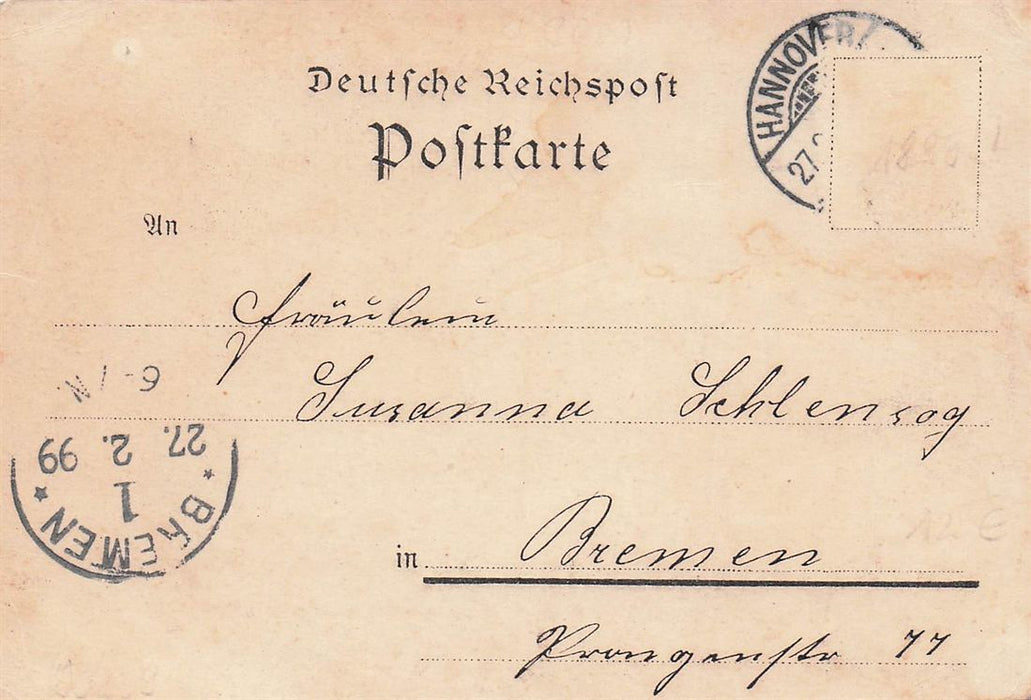 Deutsche Reichspost
Postkarte
HANNOVER
27.
An
Fräulein
Susanna Schlensog
6-7 N.
27. 2. 99
1
* BREMEN *
in Bremen
Prangenstr 77
12 €